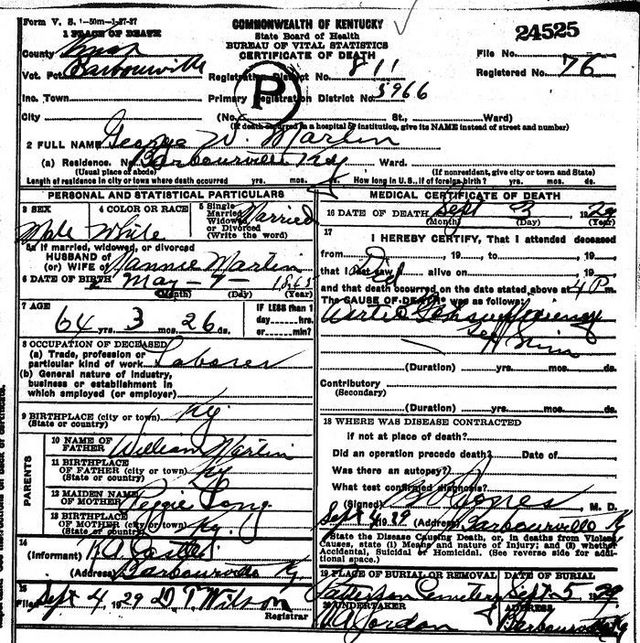 Form V. S. 1-50m-1-27-27
COMMONWEALTH OF KENTUCKY
State Board of Health
BUREAU OF VITAL STATISTICS
CERTIFICATE OF DEATH
24525
1 PLACE OF DEATH
County Knox
File No.
Vot. Pct. Barbourville
Registration District No. 811
Registered No. 76
Inc. Town
Primary Registration District No. 5966
P
City
(No. St., Ward)
(If death occurred in a hospital or institution, give its NAME instead of street and number)
2 FULL NAME George W. Martin
(a) Residence. No. Barbourville Ky Ward.
(Usual place of abode) (If nonresident, give city or town and State)
Length of residence in city or town where death occurred yrs. mos. ds. How long in U.S., if of foreign birth? yrs. mos. ds.
PERSONAL AND STATISTICAL PARTICULARS
3 SEX
Male
4 COLOR OR RACE
White
5 Single
Married
Widowed
or Divorced
(Write the word)
Married
5a If married, widowed, or divorced
HUSBAND of
(or) WIFE of Nannie Martin
6 DATE OF BIRTH May - 7 -
(Month) (Day) (Year)
7 AGE
64 yrs. 3 mos. 26 ds.
IF LESS than 1
day hrs.
or min?
8 OCCUPATION OF DECEASED
(a) Trade, profession or
particular kind of work Laborer
(b) General nature of industry,
business or establishment in
which employed (or employer)
9 BIRTHPLACE (city or town) Ky
(State or country)
PARENTS
10 NAME OF
FATHER William Martin
11 BIRTHPLACE
OF FATHER (city or town) Ky
(State or country)
12 MAIDEN NAME
OF MOTHER Peggie Long
13 BIRTHPLACE
OF MOTHER (city or town) Ky.
(State or country)
14
(Informant)
(Address) Barbourville Ky.
15
Filed Sept 4, 1929 D. T. Wilson
Registrar
MEDICAL CERTIFICATE OF DEATH
16 DATE OF DEATH Sept 3 1929
(Month) (Day) (Year)
17
I HEREBY CERTIFY, That I attended deceased
from , 19 , to , 19
that I last saw alive on , 19
and that death occurred on the date stated above at 4 P m.
The CAUSE OF DEATH was as follows:
(Duration) yrs. mos. ds.
Contributory
(Secondary)
(Duration) yrs. mos. ds.
18 WHERE WAS DISEASE CONTRACTED
if not at place of death?
Did an operation precede death? Date of
Was there an autopsy?
What test confirmed diagnosis?
(Signed) Jones M. D.
Sept 4 29 (Address) Barbourville Ky
State the Disease Causing Death, or, in deaths from Violent
Causes, state (1) Means and nature of Injury; and (2) whether
Accidental, Suicidal or Homicidal. (See reverse side for additional space.)
19 PLACE OF BURIAL OR REMOVAL
Patterson Cemetery
DATE OF BURIAL
Sept. 5 1929
20 UNDERTAKER
Jordon
ADDRESS
Barbourville Ky